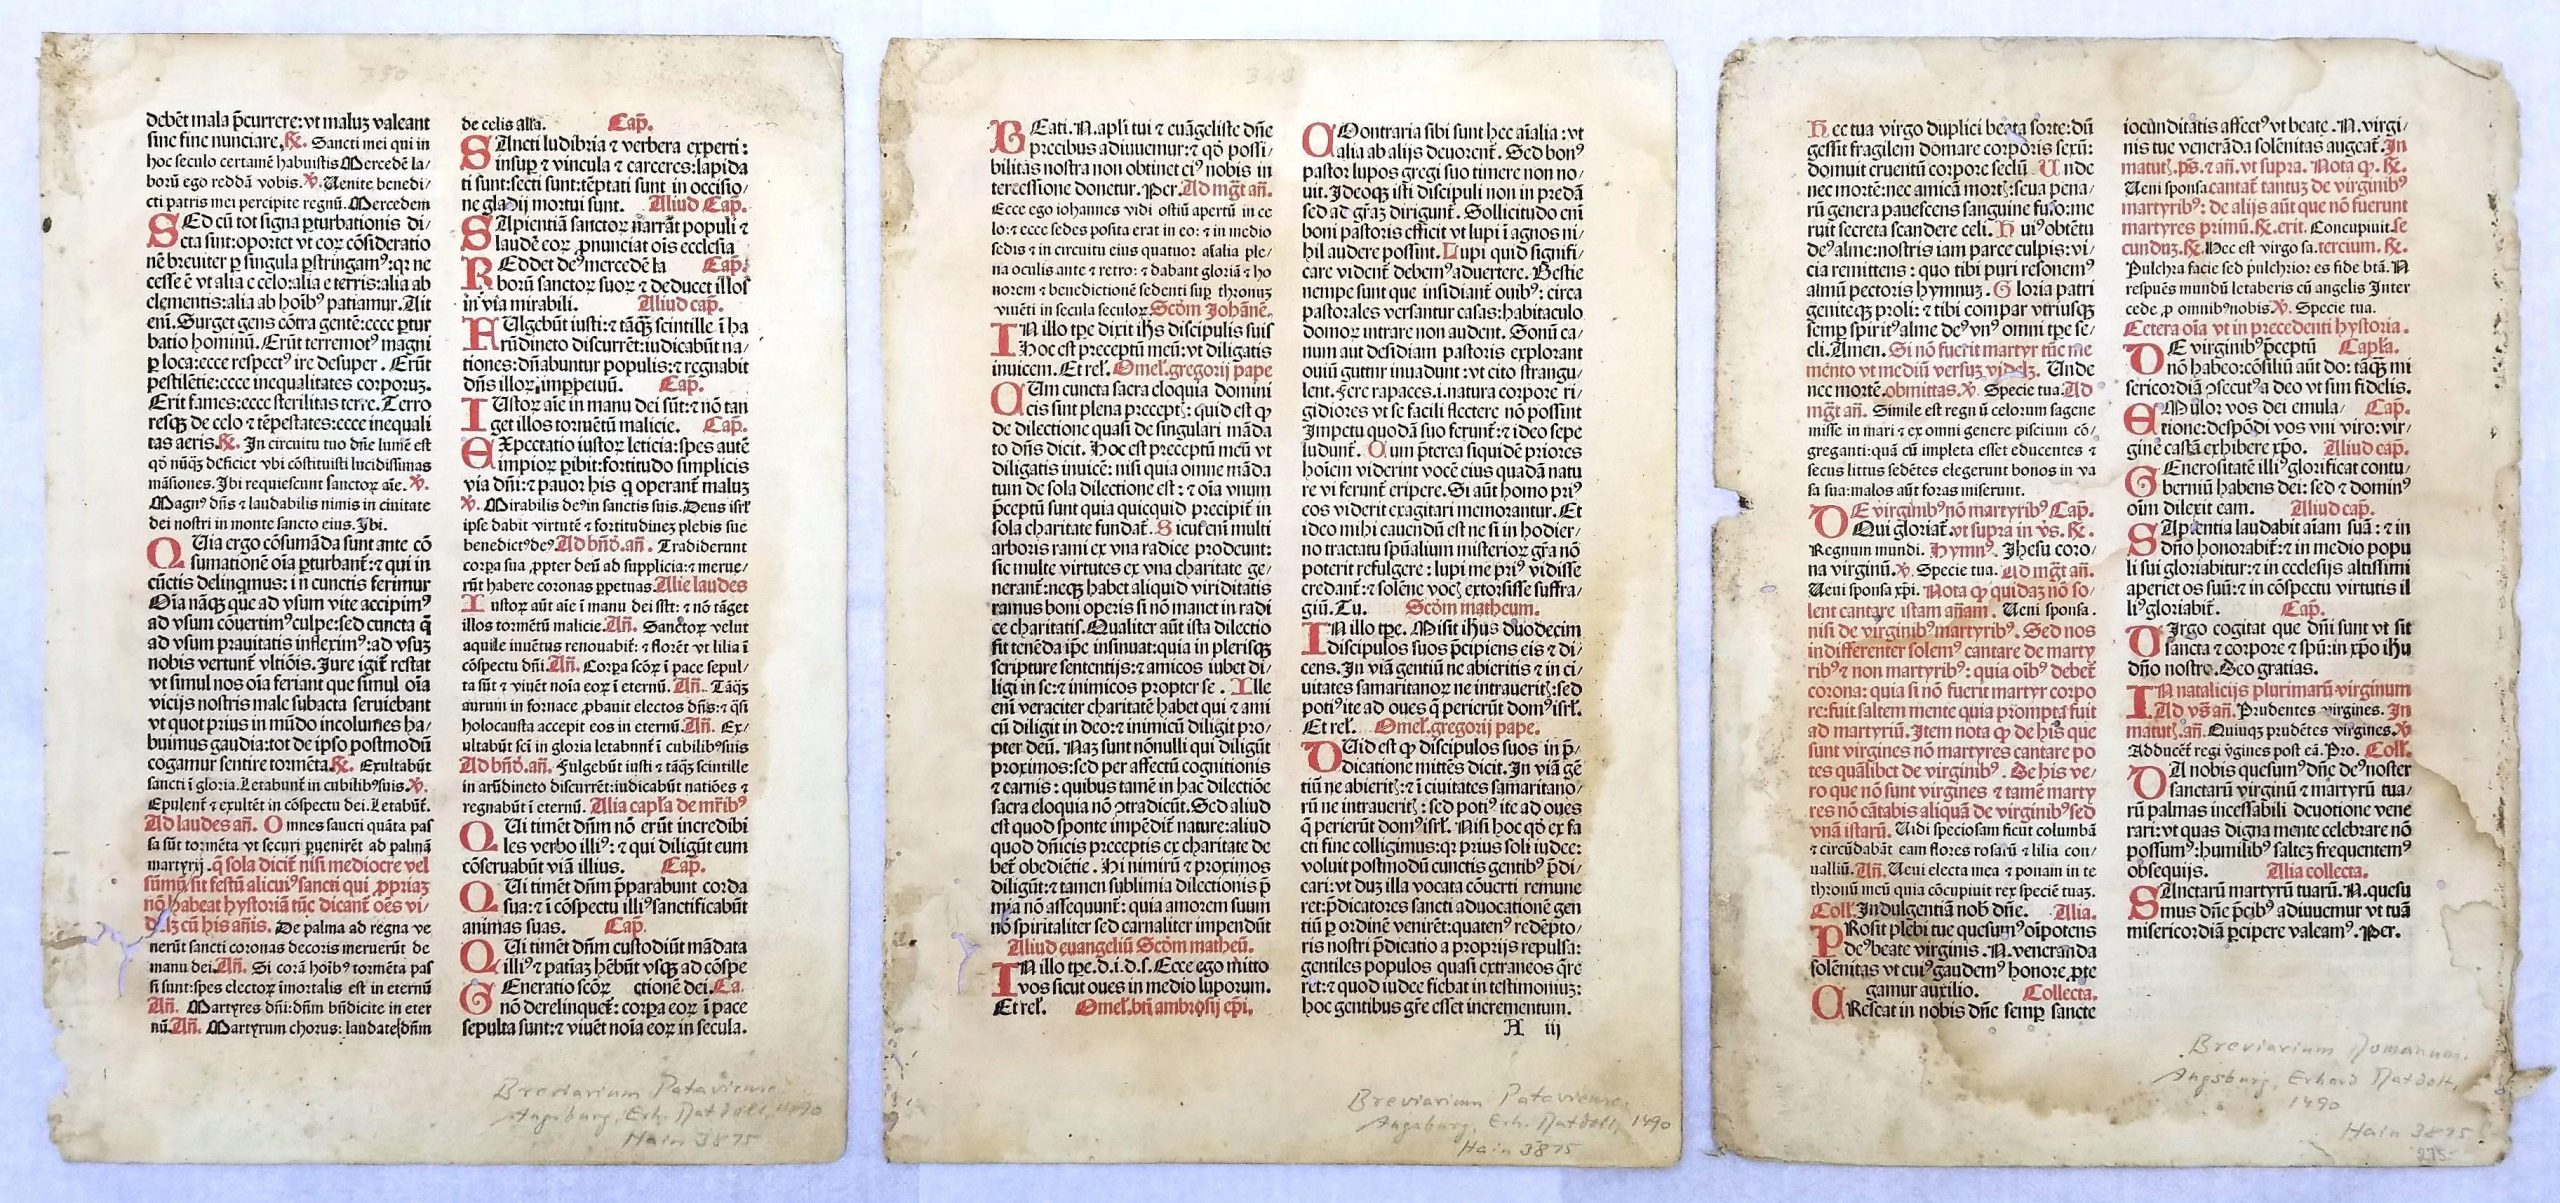 350
debēt mala p̄currere: vt maluꝫ valeant
sine fine nunciare. ℟. Sancti mei qui in
hoc seculo certamē habuistis Mercedē la/
borū ego reddā vobis. ℣. Uenite benedi/
cti patris mei percipite regnū. Mercedem
SEd cū tot signa ꝑturbationis di/
cta sint: oportet vt eoꝝ cōsideratio
nē breuiter ꝑ singula ꝑstringamꝰ: qꝛ ne
cesse ē vt alia e celo: alia e terris: alia ab
elementis: alia ab hoībꝰ patiamur. Ait
eni. Surget gens cōtra gentē: ecce ꝑtur
batio hominū. Erūt terremotꝰ magni
ꝑ loca: ecce respectꝰ ire desuper. Erūt
pestilētie: ecce inequalitates corporuꝫ.
Erit fames: ecce sterilitas terre. Terro
resqꝫ de celo ⁊ tēpestates: ecce inequali
tas aeris. ℟. In circuitu tuo dn̄e lumē est
qd̄ nūqꝫ deficiet vbi cōstituisti lucidissimas
māsiones. Ibi requiescunt sanctoꝝ aīe. ℣.
Magnꝰ dn̄s ⁊ laudabilis nimis in ciuitate
dei nostri in monte sancto eius. Ibi.
QUia ergo cōsumāda sunt ante cō
sumationē oīa ꝑturbant̄: ⁊ qui in
cūctis delinqmus: in cunctis ferimur
Oīa nāqꝫ que ad vsum vite accipimꝰ
ad vsum cōuertimꝰ culpe: sed cuncta q̄
ad vsum prauitatis infleximꝰ: ad vsuꝫ
nobis vertunt̄ vltiōis. Jure igit̄ restat
vt simul nos oīa feriant que simul oīa
vicijs nostris male subacta seruiebant
vt quot prius in mūdo incolumes ha/
buimus gaudia: tot de ipso postmodū
cogamur sentire tormēta. ℟. Exultabūt
sancti ī gloria. Letabunt̄ in cubilibꝰ suis. ℣.
Epulent̄ ⁊ exultēt in cōspectu dei. Letabūt.
Ad laudes an̄. Omnes sancti quāta pas
sa sūt tormēta vt securi ꝑuenirēt ad palmā
martyrij. q̄ sola dicit̄ nisi mediocre vel
sūmū sit festū alicuiꝰ sancti qui ꝓpriaꝫ
nō habeat hystoriā tūc dicant̄ oēs vi/
dꝫ cū his an̄is. De palma ad regna ve
nerūt sancti coronas decoris meruerūt de
manu dei. An̄. Si corā hoībꝰ tormēta pas
si sunt: spes electoꝝ īmortalis est in eternū
An̄. Martyres dn̄i: dn̄m bn̄dicite in eter
nū. An̄. Martyrum chorus: laudate dn̄m
de celis alla. Cap̄.
SAncti ludibria ⁊ verbera experti:
insuꝑ ⁊ vincula ⁊ carceres: lapida
ti sunt: secti sunt: tēptati sunt in occisio/
ne gladij mortui sunt. Aliud Cap̄.
SApientiā sanctoꝝ narrāt populi ⁊
laudē eoꝝ ꝓnunciat oīs ecclesia
REddet deꝰ mercedē la Cap̄.
borū sanctoꝝ suoꝝ ⁊ deducet illos
in via mirabili. Aliud cap̄.
FUlgebūt iusti: ⁊ tāqꝫ scintille ī ha
rūdineto discurrēt: iudicabūt na/
tiones: dn̄abuntur populis: ⁊ regnabit
dn̄s illoꝝ imꝑpetuū. Cap̄.
IUstoꝝ aīe in manu dei sūt: ⁊ nō tan
get illos tormētū malicie. Cap̄.
EXpectatio iustoꝝ leticia: spes autē
impioꝝ ꝑibit: fortitudo simplicis
via dn̄i: ⁊ pauor his q̄ operant̄ maluꝫ
℣. Mirabilis deꝰ in sanctis suis. Deus isrl̄
ipse dabit virtutē ⁊ fortitudineꝫ plebis sue
benedictꝰ deꝰ. Ad bn̄d. an̄. Tradiderunt
corꝑa sua ꝓpter deū ad supplicia: ⁊ merue/
rūt habere coronas ꝑpetuas. Alie laudes
Iustoꝝ aūt aīe ī manu dei sūt: ⁊ nō tāget
illos tormētū malicie. An̄. Sanctoꝝ velut
aquile iuuētus renouabit̄: ⁊ florēt vt lilia ī
cōspectu dn̄i. An̄. Corꝑa scōꝝ ī pace sepul/
ta sūt ⁊ viuēt noīa eoꝝ ī eternū. An̄. Tāqꝫ
aurum in fornace ꝓbauit electos dn̄s: ⁊ qsi
holocausta accepit eos in eternū. An̄. Ex/
ultabūt scī in gloria letabunt̄ ī cubilibꝰ suis
Ad bn̄d. an̄. Fulgebūt iusti ⁊ tāqꝫ scintille
in arūdineto discurrēt: iudicabūt natiōes ⁊
regnabūt ī eternū. Alia capl̄a de mr̄ibꝰ
QUi timēt dn̄m nō erūt incredibi
les verbo illiꝰ: ⁊ qui diligūt eum
cōseruabūt viā illius. Cap̄.
QUi timēt dn̄m p̄parabunt corda
sua: ⁊ ī cōspectu illiꝰ sanctificabūt
animas suas. Cap̄.
QUi timēt dn̄m custodiūt mādata
illiꝰ ⁊ patiaꝫ hēbūt vsqꝫ ad cōspe
GEneratio scōꝝ ctionē dei. Ca.
nō derelinquet̄: corꝑa eoꝝ ī pace
sepulta sunt: ⁊ viuēt noīa eoꝝ in secula.
Breviarium Pataviense.
Augsburg, Erh. Ratdolt, 1490
Hain 3875
BEati. N. apl̄i tui ⁊ euāgeliste dn̄e
precibus adiuuemur: ⁊ qd̄ possi/
bilitas nostra non obtinet eiꝰ nobis in
tercessione donetur. Per. Ad mḡt an̄.
Ecce ego iohannes vidi ostiū apertū in ce
lo: ⁊ ecce sedes posita erat in eo: ⁊ in medio
sedis ⁊ in circuitu eius quatuor aīalia ple/
na oculis ante ⁊ retro: ⁊ dabant gloriā ⁊ ho
norem ⁊ benedictionē sedenti suꝑ thronuꝫ
viuēti in secula seculoꝝ Scd̄m Johānē.
IN illo tꝑe dixit ih̄s discipulis suis
Hoc est preceptū meū: vt diligatis
inuicem. Et rel̄. Omel̄. gregorij pape
CUm cuncta sacra eloquia domini
cis sint plena precept̄: quid est qꝙ
de dilectione quasi de singulari māda
to dn̄s dicit. Hoc est preceptū meū vt
diligatis inuicē: nisi quia omne māda
tum de sola dilectione est: ⁊ oīa vnum
p̄ceptū sunt quia quicquid precipit̄ in
sola charitate fundat̄. Sicut eni multi
arboris rami ex vna radice prodeunt:
sic multe virtutes ex vna charitate ge/
nerant̄: necqꝫ habet aliquid viriditatis
ramus boni operis si nō manet in radi
ce charitatis. Qualiter aūt ista dilectio
fit tenēda ip̄e insinuat: quia in plerisqꝫ
scripture sententijs: ⁊ amicos iubet di/
ligi in se: ⁊ inimicos propter se. Ille
eni veraciter charitatē habet qui ⁊ ami
cū diligit in deo: ⁊ inimicū diligit pro/
pter deū. Naꝫ sunt nōnulli qui diligūt
proximos: sed per affectū cognitionis
⁊ carnis: quibus tamē in hac dilectiōe
sacra eloquia nō ꝯtradicūt. Sed aliud
est quod sponte impēdit̄ nature: aliud
quod dn̄icis preceptis ex charitate de
bet̄ obediētie. Hi nimirū ⁊ proximos
diligūt: ⁊ tamen sublimia dilectionis p̄
mia nō assequunt̄: quia amorem suum
nō spiritaliter sed carnaliter impendūt
Aliud euangeliū Scd̄m matheū.
IN illo tꝑe. d. i. d. s. Ecce ego mitto
vos sicut oues in medio luporum.
Et rel̄. Omel̄. bt̄i ambrosij ep̄i.
COntraria sibi sunt hec aīalia: vt
alia ab alijs deuorent̄. Sed bonꝰ
pastor lupos gregi suo timere non no/
uit. Ideoqꝫ isti discipuli non in predā
sed ad gr̄aꝫ dirigunt̄. Sollicitudo eni
boni pastoris efficit vt lupi ī agnos ni/
hil audere possint. Lupi quid signifi/
care vident̄ debemꝰ aduertere. Bestie
nempe sunt que insidiant̄ ouibꝰ: circa
pastorales versantur casas: habitaculo
domoꝝ intrare non audent. Sonū ca/
num aut desidiam pastoris explorant
ouiū guttur inuadunt: vt cito strangu/
lent. Fere rapaces. i. natura corpore ri/
gidiores vt se facili flectere nō possint
Impetu quodā suo ferunt̄: ⁊ ideo sepe
ludunt̄. Cum p̄terea siquidē priores
hoīem viderint vocē eius quadā natu
re vi ferunt̄ eripere. Si aūt homo priꝰ
eos viderit exagitari memorantur. Et
ideo mihi cauendū est ne si in hodier/
no tractatu spūalium misterioꝝ gr̄a nō
poterit refulgere: lupi me priꝰ vidisse
credant̄: ⁊ solēne voc̄ extorsisse suffra/
giū. Tu. Scd̄m matheum.
IN illo tꝑe. Misit ih̄us duodecim
discipulos suos p̄cipiens eis ⁊ di/
cens. In viā gentiū ne abieritis ⁊ in ci/
uitates samaritanoꝝ ne intrauerit̄: sed
potiꝰ ite ad oues q̄ perierūt domꝰ isrl̄.
Et rel̄. Omel̄. gregorij pape.
QUid est qꝙ discipulos suos in p̄/
dicatione mittēs dicit. In viā gē
tiū ne abierit̄: ⁊ ī ciuitates samaritano/
rū ne intrauerit̄: sed potiꝰ ite ad oues
q̄ perierūt domꝰ isrl̄. Nisi hoc qd̄ ex fa
cti fine colligimus: qꝛ prius soli iudee:
voluit postmodū cunctis gentibꝰ p̄di/
cari: vt duꝫ illa vocata cōuerti remune
ret: p̄dicatores sancti aduocationē gen
tiū ꝑ ordinē venirēt: quatenꝰ redēpto/
ris nostri p̄dicatio a proprijs repulsa:
gentiles populos quasi extraneos q̄re
ret: ⁊ quod iudee fiebat in testimoniuꝫ:
hoc gentibus gr̄e esset incrementum.
A iij
Breviarium Pataviense.
Augsburg, Erh. Ratdolt, 1490
Hain 3875
Hec tua virgo duplici beata sorte: dū
gestit fragilem domare corporis sexū:
domuit cruentū corpore seclū Unde
nec mortē: nec amicā mort̄: seua pena/
rū genera pauescens sanguine fuso: me
ruit secreta scandere celi. Huiꝰ obtētu
deꝰ alme: nostris iam parce culpis: vi/
cia remittens: quo tibi puri resonemꝰ
almū pectoris hymnuꝫ. Gloria patri
geniteqꝫ proli: ⁊ tibi compar vtriusqꝫ
semꝑ spiritꝰ alme deꝰ vnꝰ omni tꝑe se/
cli. Amen. Si nō fuerit martyr tūc me
mēto vt mediū versuꝫ vidꝫ. Unde
nec mortē. obmittas. ℣. Specie tua. Ad
mḡt an̄. Simile est regnū celorum sagene
misse in mari ⁊ ex omni genere piscium cō/
greganti: quā cū impleta esset educentes ⁊
secus littus sedētes elegerunt bonos in va
sa sua: malos aūt foras miserunt.
DE virginibꝰ nō martyribꝰ Cap̄.
Qui gloriat̄. vt supra in vs̄. ℟.
Regnum mundi. Hymnꝰ. Jhesu coro/
na virginū. ℣. Specie tua. Ad mḡt an̄.
Ueni sponsa xp̄i. Nota qꝙ quidaꝫ nō so/
lent cantare istam an̄am. Ueni sponsa.
nisi de virginibꝰ martyribꝰ. Sed nos
indifferenter solemꝰ cantare de marty
ribꝰ ⁊ non martyribꝰ: quia oībꝰ debet̄
corona: quia si nō fuerit martyr corpo
re: fuit saltem mente quia prompta fuit
ad martyriū. Item nota qꝙ de his que
sunt virgines nō martyres cantare po
tes quālibet de virginibꝰ. De his ve/
ro que nō sunt virgines ⁊ tamē marty
res nō cātabis aliquā de virginibꝰ sed
vnā istarū. Uidi speciosam sicut columbā
⁊ circūdabāt eam flores rosarū ⁊ lilia con/
ualliū. An̄. Ueni electa mea ⁊ ponam in te
thronū meū quia cōcupiuit rex speciē tuaꝫ.
Coll̄. Indulgentiā nob̄ dn̄e. Alia.
PRosit plebi tue quesumꝰ oīpotens
deꝰ beate virginis. N. veneranda
solēnitas vt cuiꝰ gaudemꝰ honore ꝓte
gamur auxilio. Collecta.
CRescat in nobis dn̄e semꝑ sancte
iocunditatis affectꝰ vt beate. N. virgi/
nis tue venerāda solēnitas augeat̄. In
matut̄. ps̄. ⁊ an̄. vt supra. Nota qꝙ. ℟.
Ueni sponsa cantat̄ tantuꝫ de virginibꝰ
martyribꝰ: de alijs aūt que nō fuerunt
martyres primū. ℟. erit. Concupiuit. se
cunduꝫ. ℟. Hec est virgo sa. tercium. ℟.
Pulchra facie sed pulchrior es fide btā. N
respuēs mundū letaberis cū angelis Inter
cede ꝓ omnibꝰ nobis. ℣. Specie tua.
Cetera oīa vt in precedenti hystoria.
DE virginibꝰ p̄ceptū Capl̄a.
nō habeo: cōsiliū aūt do: tāqꝫ mi
sericordiā ꝯsecutꝰ a deo vt sim fidelis.
EMulor vos dei emula/ Cap̄.
tione: despōdi vos vni viro: vir/
ginē castā exhibere xp̄o. Aliud cap̄.
GEnerositatē illiꝰ glorificat contu/
berniū habens dei: sed ⁊ dominꝰ
oīm dilexit eam. Aliud cap̄.
SApientia laudabit aīam suā: ⁊ in
dn̄o honorabit̄: ⁊ in medio popu
li sui gloriabitur: ⁊ in ecclesijs altissimi
aperiet os suū: ⁊ in cōspectu virtutis il
liꝰ gloriabit̄. Cap̄.
UIrgo cogitat que dn̄i sunt vt sit
sancta ⁊ corpore ⁊ spū: in xp̄o ih̄u
dn̄o nostro. Deo gratias.
IN natalicijs plurimarū virginum
Ad vs̄ an̄. Prudentes virgines. In
matut̄. an̄. Quinqꝫ prudētes virgines. ℣
Adducēt̄ regi v̄gines post eā. Pro. Coll̄.
DA nobis quesumꝰ dn̄e deꝰ noster
sanctarū virginū ⁊ martyrū tua/
rū palmas incessabili deuotione vene
rari: vt quas digna mente celebrare nō
possumꝰ: humilibꝰ salteꝫ frequentemꝰ
obsequijs. Alia collecta.
SAnctarū martyrū tuarū. N. quesu
mus dn̄e p̄cibꝰ adiuuemur vt tuā
misericordiā ꝑcipere valeamꝰ. Per.
Breviarium Romanum.
Augsburg, Erhard Ratdolt,
1490
Hain 3875
275